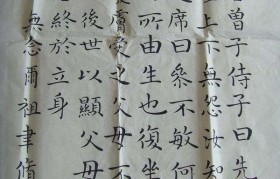 曾子侍子曰先
上下無怨汝知
席曰參不敏何
所由生也復坐
膚受之父母不
後世以顯父母
終於立身
無念爾祖聿脩